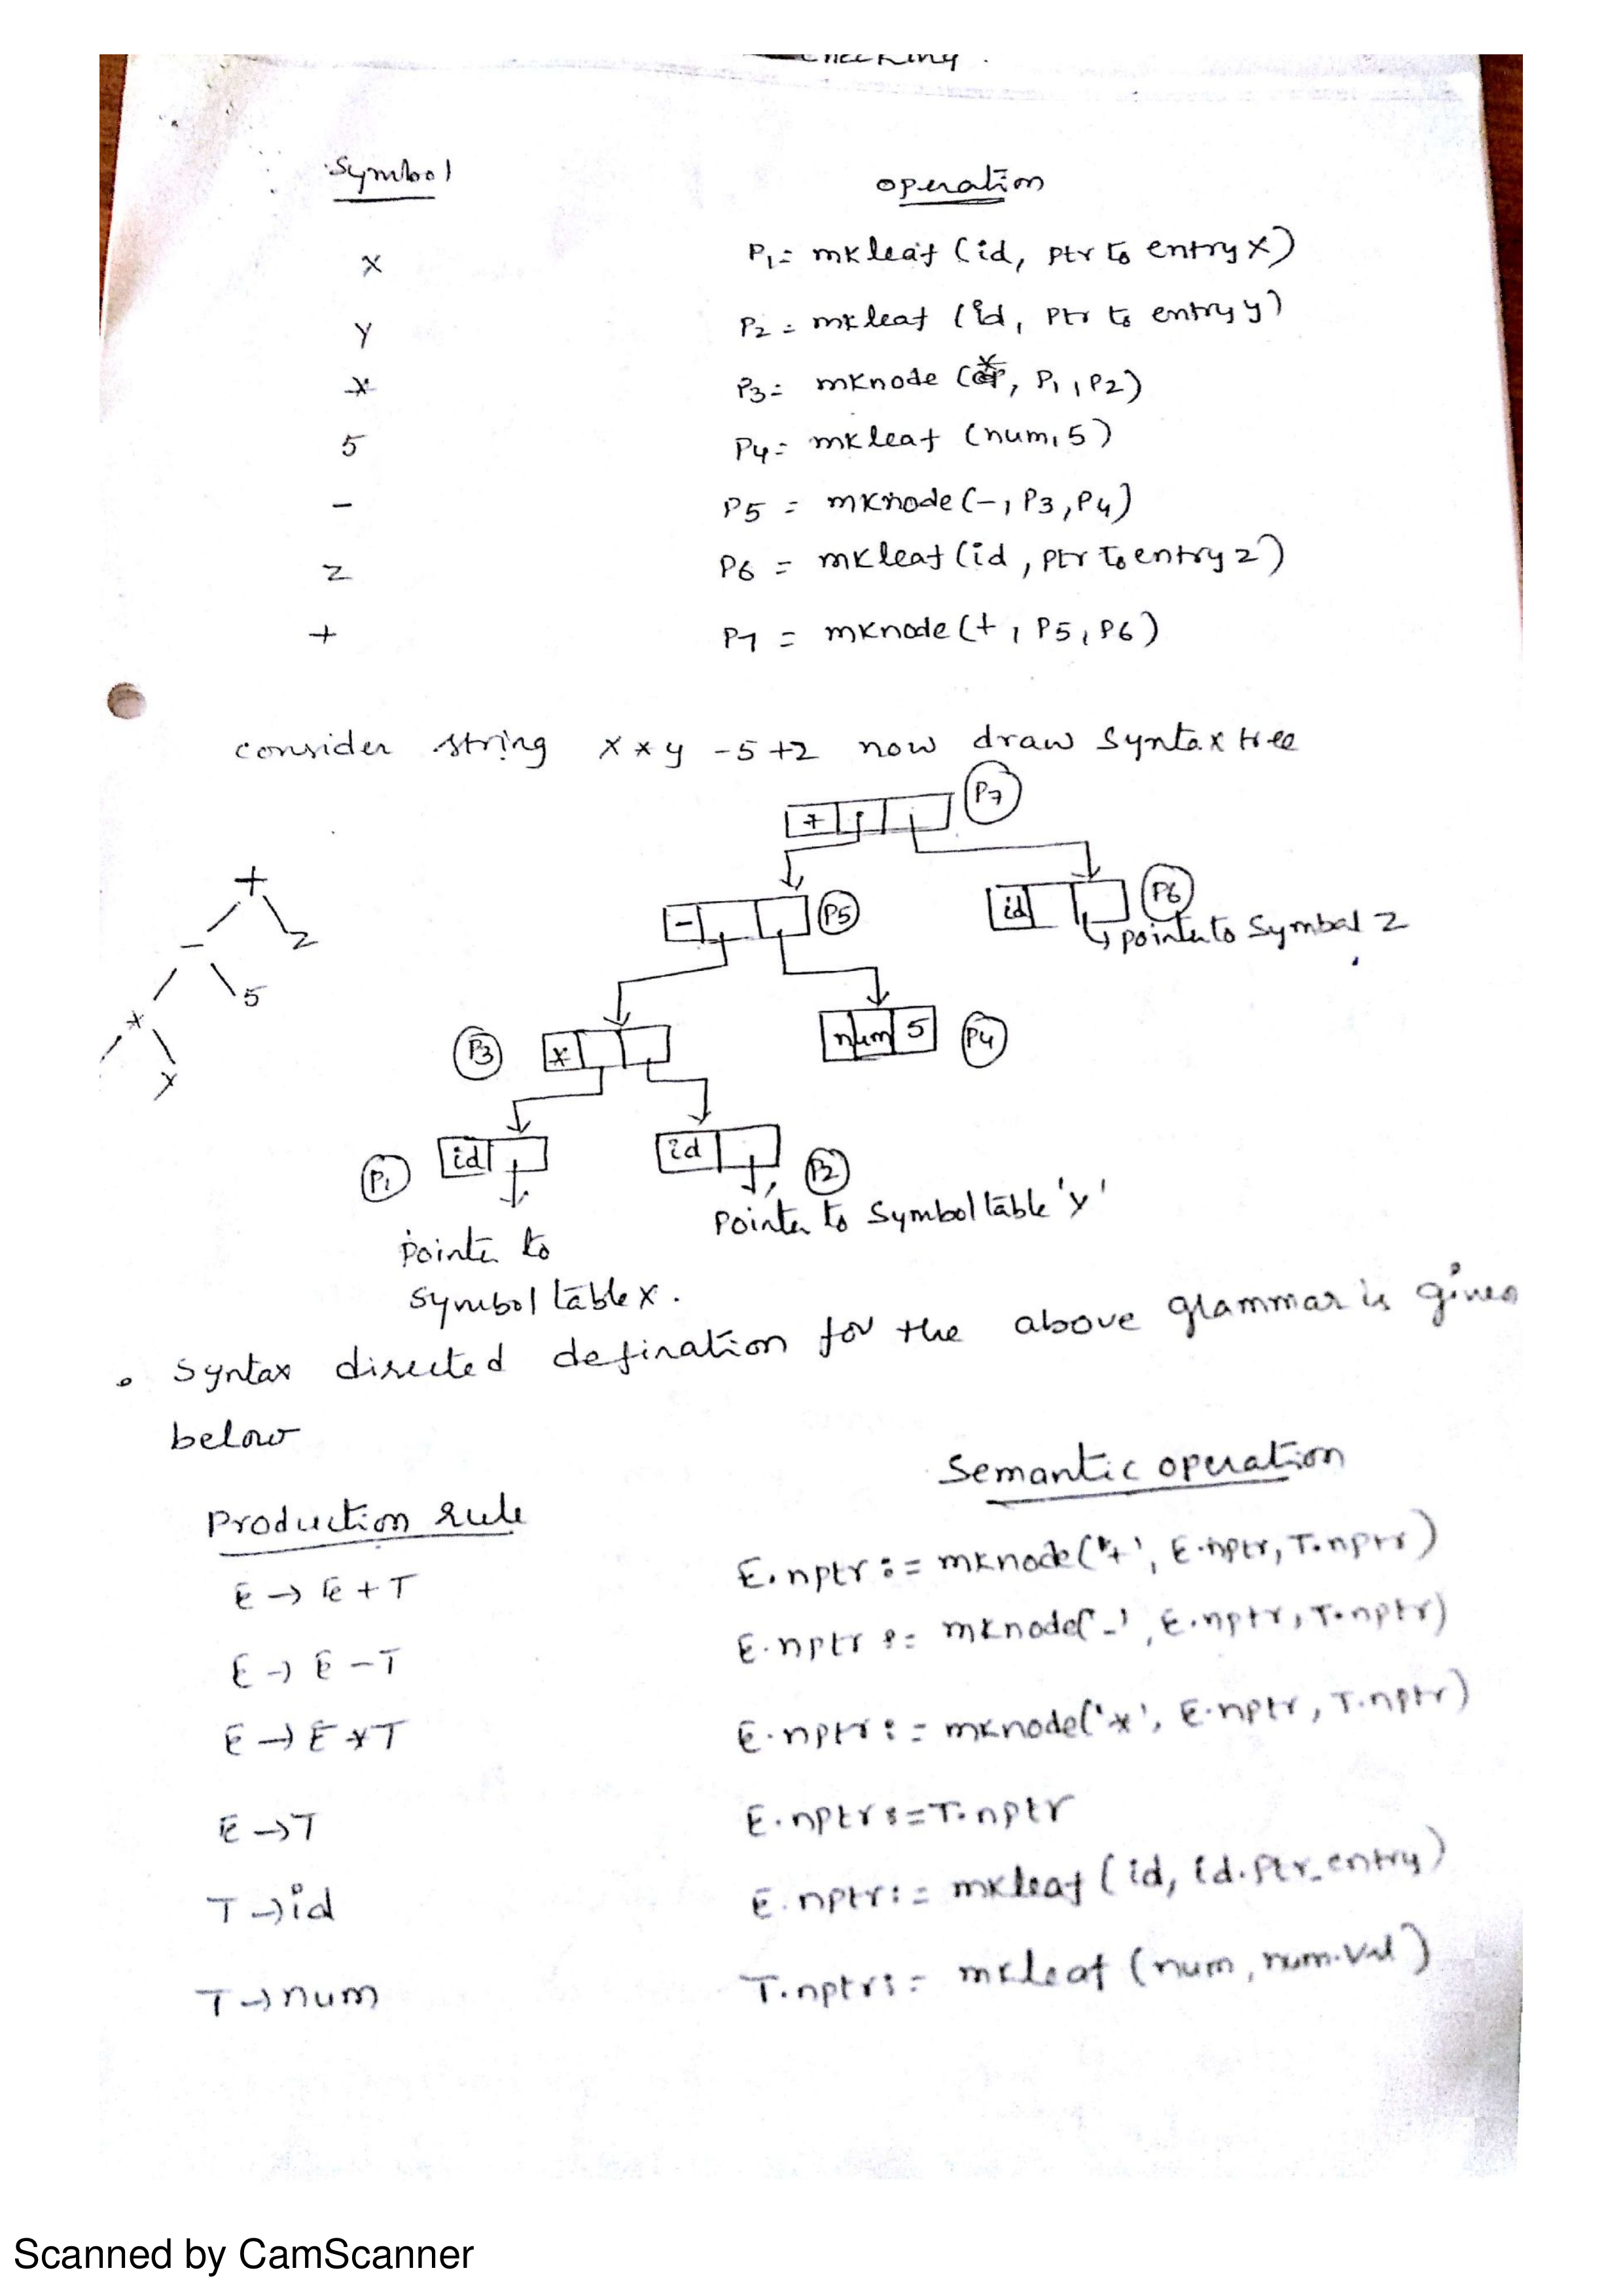 checking.
Symbol operation
x P1= mkleaf (id, ptr to entry x)
y P2 = mkleaf (id, ptr to entry y)
* P3= mknode (*, P1, P2)
5 P4= mkleaf (num, 5)
- P5 = mknode (-, P3, P4)
z P6 = mkleaf (id, ptr to entry z)
+ P7 = mknode (+, P5, P6)
consider string x * y - 5 + z now draw Syntax tree
+ P7
+ - P5 id P6
- z pointer to Symbal z
5
* P3 * num 5 P4
y
P1 id id P2
pointer to Symbol table 'y'
pointe to
symbol table x.
• Syntax directed defination for the above glammar is given
below
Semantic operation
Production rule
E → E + T E.nptr := mknode('+', E.nptr, T.nptr)
E → E - T E.nptr := mknode('-', E.nptr, T.nptr)
E → E * T E.nptr := mknode('*', E.nptr, T.nptr)
E → T E.nptr := T.nptr
T → id E.nptr := mkleaf (id, id.ptr_entry)
T → num T.nptr := mkleaf (num, num.val)
Scanned by CamScanner